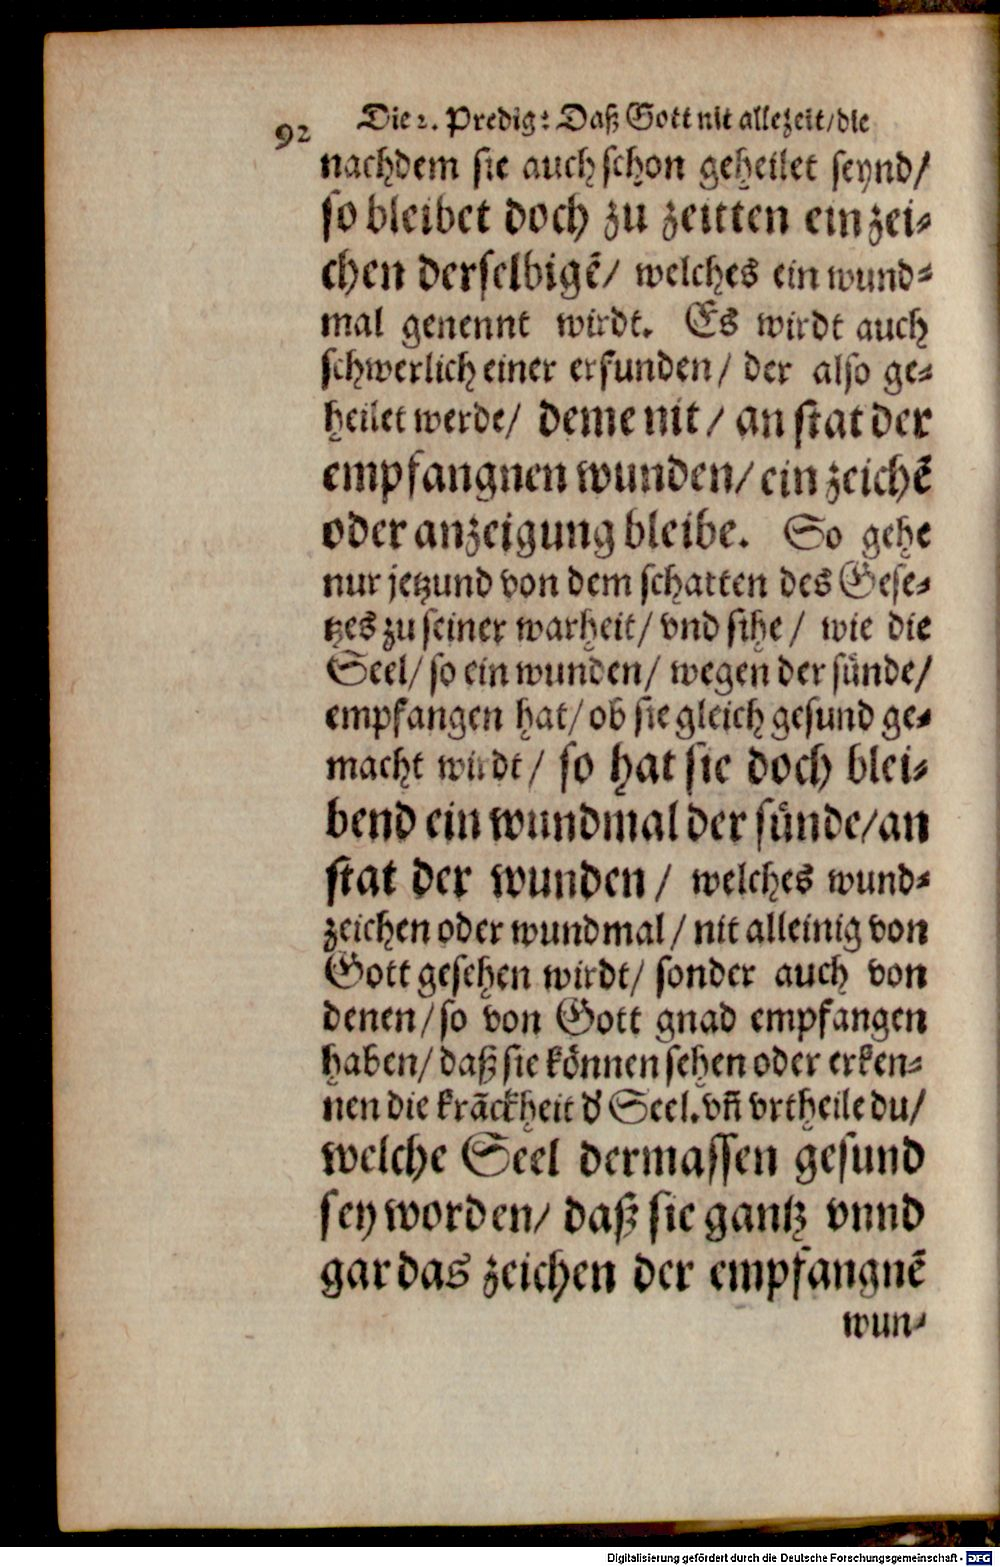 92 Die 2. Predig: Daß Gott nit allezeit/die
nachdem sie auch schon geheilet seynd/
so bleibet doch zu zeitten ein zei-
chen derselbigẽ/ welches ein wund-
mal genennt wirdt. Es wirdt auch
schwerlich einer erfunden/ der also ge-
heilet werde/ deme nit/ an stat der
empfangnen wunden/ ein zeichẽ
oder anzeigung bleibe. So gehe
nur jetzund von dem schatten des Gese-
tzes zu seiner warheit/ vnd sihe/ wie die
Seel/ so ein wunden/ wegen der sünde/
empfangen hat/ ob sie gleich gesund ge-
macht wirdt/ so hat sie doch blei-
bend ein wundmal der sünde/an
stat der wunden/ welches wund-
zeichen oder wundmal/ nit alleinig von
Gott gesehen wirdt/ sonder auch von
denen/so von Gott gnad empfangen
haben/ daß sie können sehen oder erken-
nen die krãckheit d' Seel. vñ vrtheile du/
welche Seel dermassen gesund
sey worden/ daß sie gantz vnnd
gar das zeichen der empfangnẽ
wun-
Digitalisierung gefördert durch die Deutsche Forschungsgemeinschaft - DFG